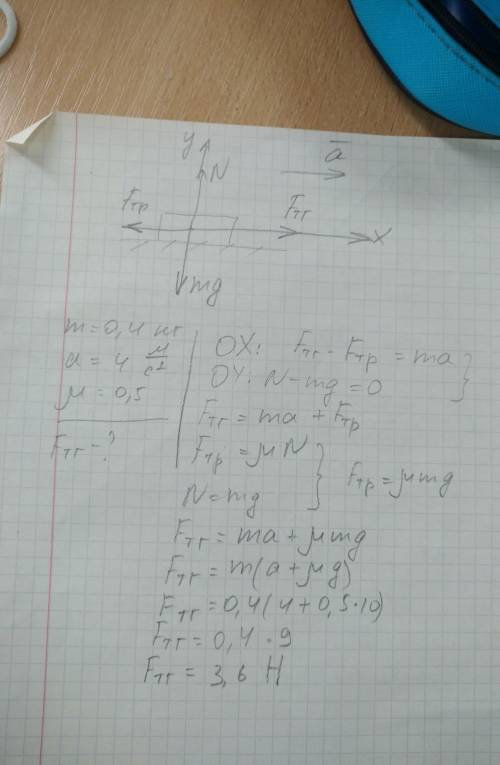 y
N
a
Fтр
Fтг
x
mg
m = 0,4 кг
a = 4 м/с²
μ = 0,5
Fтг - ?
OX: Fтг - Fтр = ma
OY: N - mg = 0
Fтг = ma + Fтр
Fтр = μN
N = mg
Fтр = μmg
Fтг = ma + μmg
Fтг = m(a + μg)
Fтг = 0,4(4 + 0,5·10)
Fтг = 0,4 · 9
Fтг = 3,6 Н